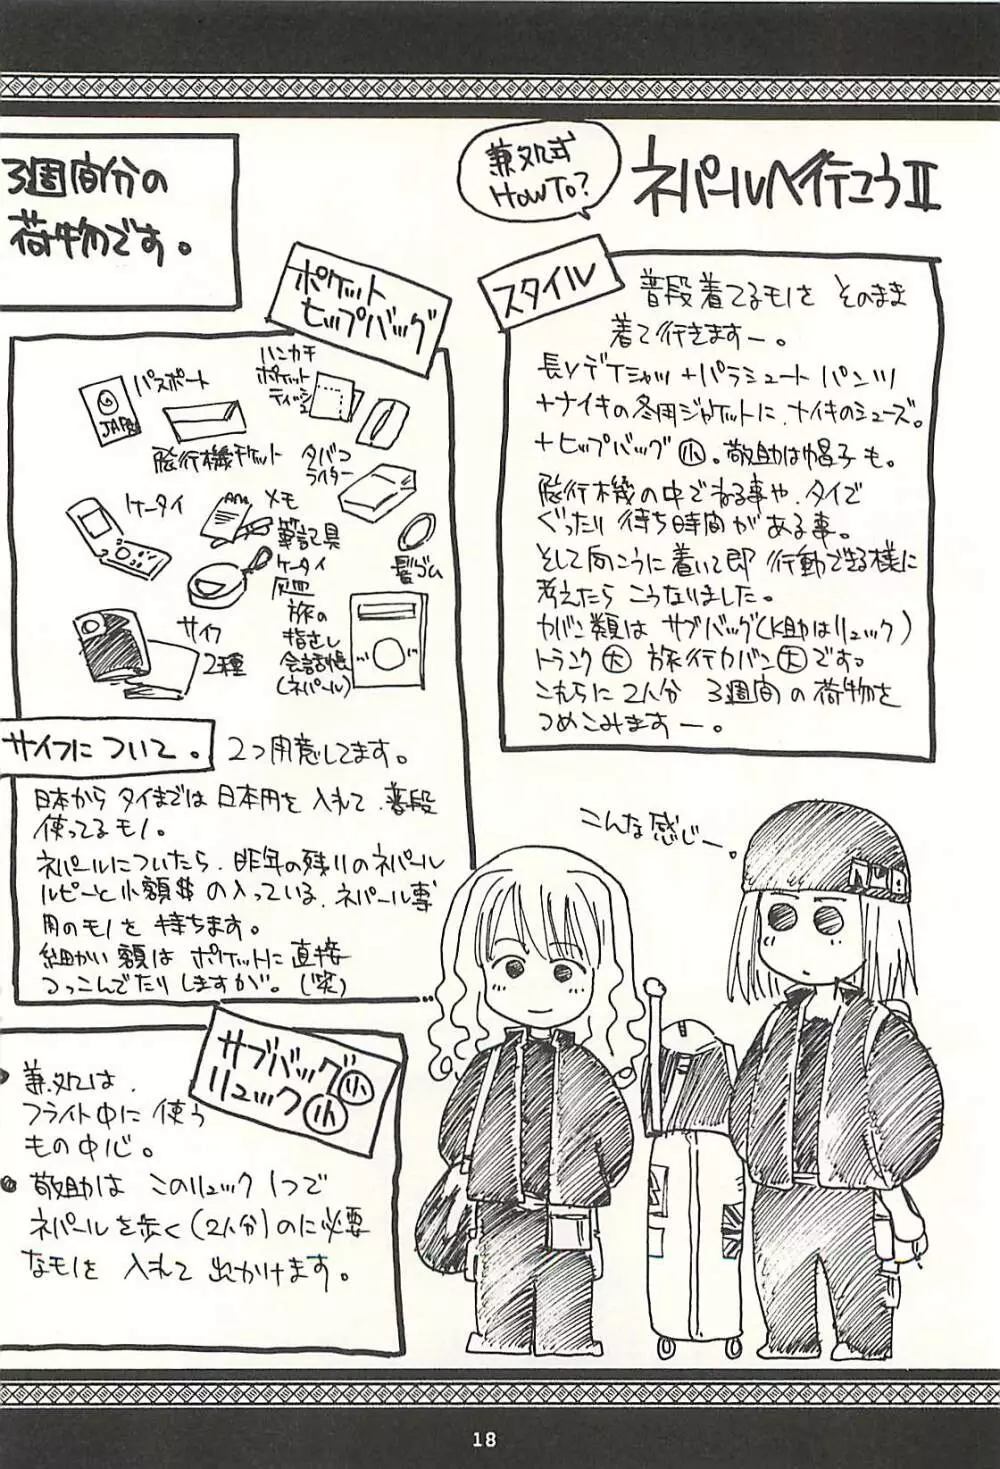 ネパールへ行こうII
兼処式
HOWTO?
スタイル
普段着てるモノを そのまま
着て行きますー。
長VデTシャツ+パラシュート パンツ
+ナイキの冬用ジャケットに、ナイキのシューズ。
+ヒップバッグ小。敬助は帽子も。
飛行機の中でねる事や、タイで
ぐったり 待ち時間がある事。
そして向こうに着いて即 行動できる様に
考えたら こうなりました。
カバン類は サブバッグ(K助はリュック)
トランク大 旅行カバン大です。
これらに 2人分 3週間の荷物を
つめこみますー。
3週間分の
荷物です。
ポケット
ヒップバッグ
パスポート
JAPA
飛行機チケット
ハンカチ
ポケット
ティッシュ
タバコ
ライター
ケータイ
メモ
筆記具
ケータイ
灰皿
髪ゴム
サイフ
2種
旅の
指さし
会話帳
(ネパール)
サイフについて。
2つ用意してます。
日本から タイまでは 日本円を 入れて、普段
使ってるモノ。
ネパールについたら、昨年の残りのネパール
ルピーと小額$の入っている、ネパール専
用のモノを 持ちます。
細かい額は ポケットに 直接
つっこんでたりしますが。(笑)
サブバッグ小
リュック小
兼処は、
フライト中に 使う
もの中心。
敬助は このリュック1つで
ネパールを歩く(2人分)のに必要
なモノを 入れて 出かけます。
こんな感じー。
18